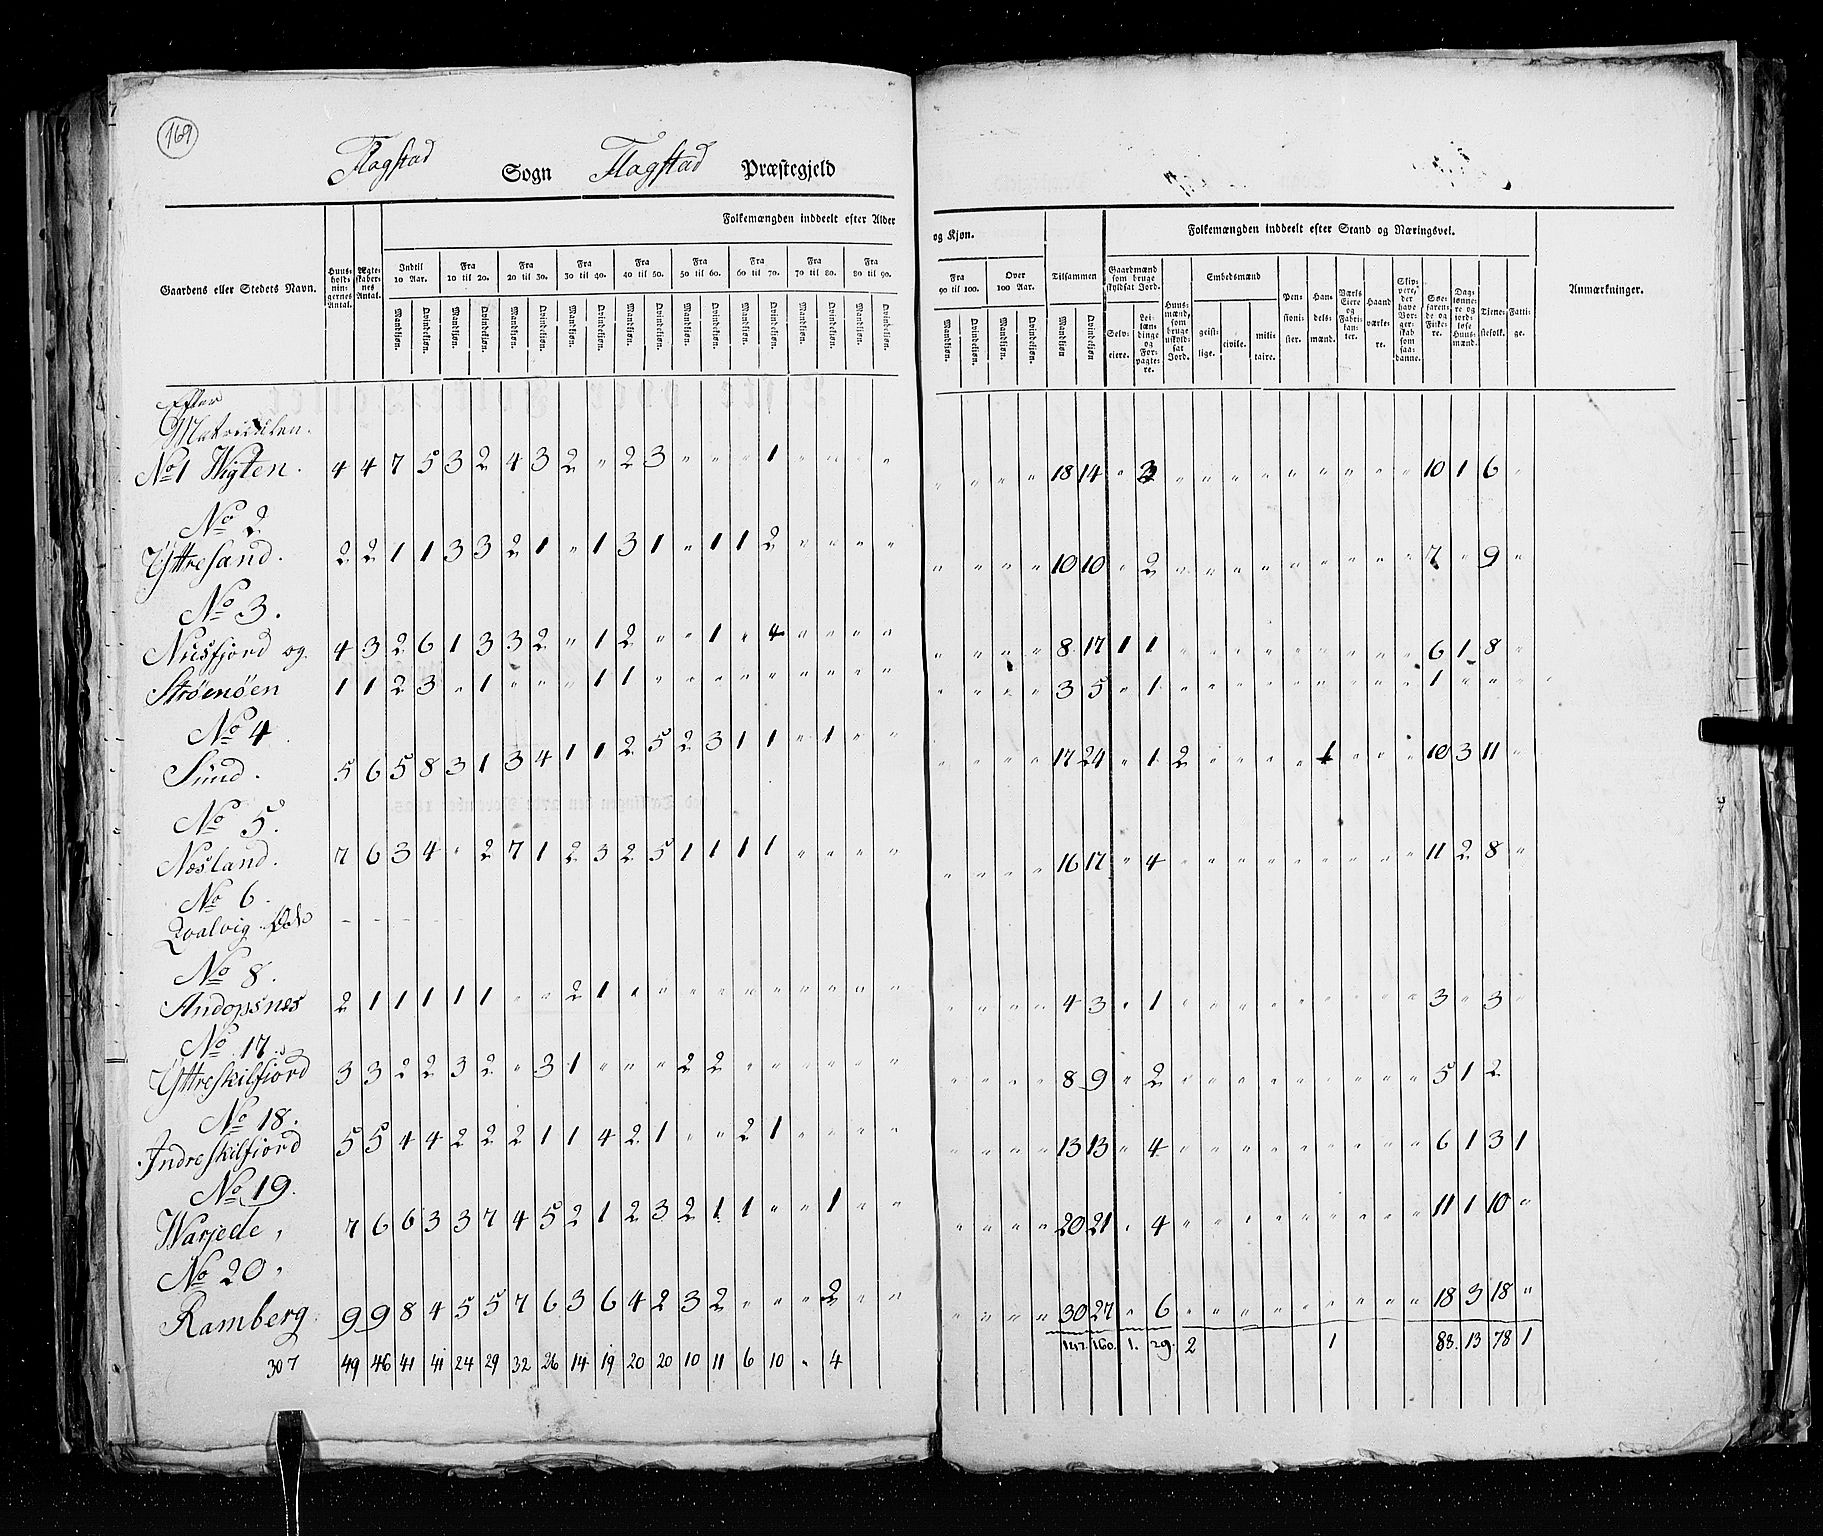 169
Flagstad Sogn Flagstad Præstegjeld
Folkemængden inddeelt efter Alder og Kjøn. Folkemængden inddeelt efter Stand og Næringsvei.
Gaardens eller Stedets Navn. Huusholdningernes Antal. Ægteskabernes Antal. Indtil 10 Aar. Fra 10 til 20. Fra 20 til 30. Fra 30 til 40. Fra 40 til 50. Fra 50 til 60. Fra 60 til 70. Fra 70 til 80. Fra 80 til 90. Fra 90 til 100. Over 100 Aar. Tilsammen Gaardmænd som bruge skyldsat Jord. Huusmænd, som bruge uskyldsat Jord. Embedsmænd Pensionister. Handelsmænd. Værks Eiere og Fabrikanter. Haandværkere. Skippere, der have Borgerskab som saadanne. Søefarende og Fiskere. Daglønnere og jordløse Huusmænd. Tjenestefolk. Fattige. Anmærkninger.
Mandkjøn. Qvindekjøn. Mandkjøn. Qvindekjøn. Mandkjøn. Qvindekjøn. Mandkjøn. Qvindekjøn. Mandkjøn. Qvindekjøn. Mandkjøn. Qvindekjøn. Mandkjøn. Qvindekjøn. Mandkjøn. Qvindekjøn. Mandkjøn. Qvindekjøn. Mandkjøn. Qvindekjøn. Mandkjøn. Qvindekjøn. Mandkjøn Qvindekjøn Selveiere. Leilændinge og Forpagtere. geistlige. civile. militaire.
Efter
Matriculen.
No 1 Wigten. 4 4 7 5 3 2 4 3 2 " 2 3 " " " 1 " " " " " " " " 18 14 " 3 " " " " " " " " " 10 1 6 "
No 2
Yttresand. 2 2 1 1 3 3 2 1 " 1 3 1 " 1 1 2 " " " " " " " " 10 10 " 2 " " " " " " " " " 7 " 9 "
No 3.
Nusfjord og 4 3 2 6 1 3 3 2 " 1 2 " " 1 " 4 " " " " " " " " 8 17 1 1 " " " " " " " " " 6 1 8 "
Strøenøen 1 1 2 3 " 1 " " " 1 1 " " " " " " " " " " " " " 3 5 " 1 " " " " " " " " " 1 " " "
No 4
Sund. 5 6 5 8 3 1 3 4 1 1 2 5 2 3 1 1 " 1 " " " " " " 17 24 " 1 2 " " " " 1 " " " 10 3 11 "
No 5.
Næsland. 7 6 3 4 " 2 7 1 2 3 2 5 1 1 1 1 " " " " " " " " 16 17 " 4 " " " " " " " " " 11 2 8 "
No 6.
Qvalvig Øde - - - -
No 8.
Andopsnes 2 1 1 1 1 1 " " 2 1 " " " " " " " " " " " " " " 4 3 " 1 " " " " " " " " " 3 " 3 "
No 17.
Yttreskilfiord 3 3 2 2 3 2 " 3 1 " " " 2 2 " " " " " " " " " " 8 9 " 2 " " " " " " " " " 5 1 2
No 18.
Indreskilfiord 5 5 4 4 2 2 2 1 1 4 2 1 " " 2 1 " " " " " " " " 13 13 " 4 " " " " " " " " " 6 1 3 1
No 19.
Warjede, 7 6 6 3 3 7 4 5 2 1 2 3 2 1 1 " " 1 " " " " " " 20 21 " 4 " " " " " " " " " 11 1 10 "
No 20,
Ramberg 9 9 8 4 5 5 7 6 3 6 4 2 3 2 " " " 2 " " " " " " 30 27 " 6 " " " " " " " " " 18 3 18 "
307 49 46 41 41 24 29 32 26 14 19 20 20 10 11 6 10 " 4 147. 160. 1. 29. 2 1 88. 13 78 1